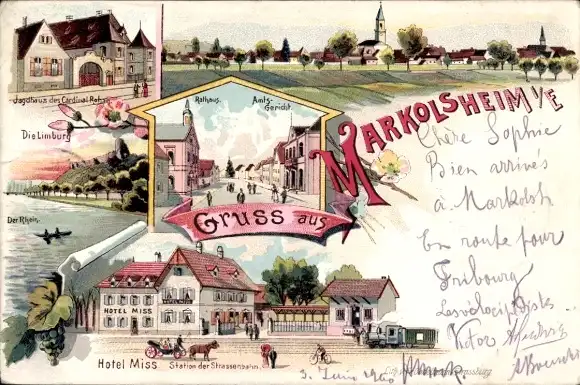 Jagdhaus des Cardinal Rohan
Die Limburg
Der Rhein
Rathaus.
Amts-
Gericht.
MARKOLSHEIM I/E
GRUSS aus
Chère Sophie
Bien arrivés
à Markolsh
En route pour
Fribourg
Les vélocipédistes
Victor
HOTEL MISS
Hotel Miss Station der Strassenbahn.
3. Juin 1900